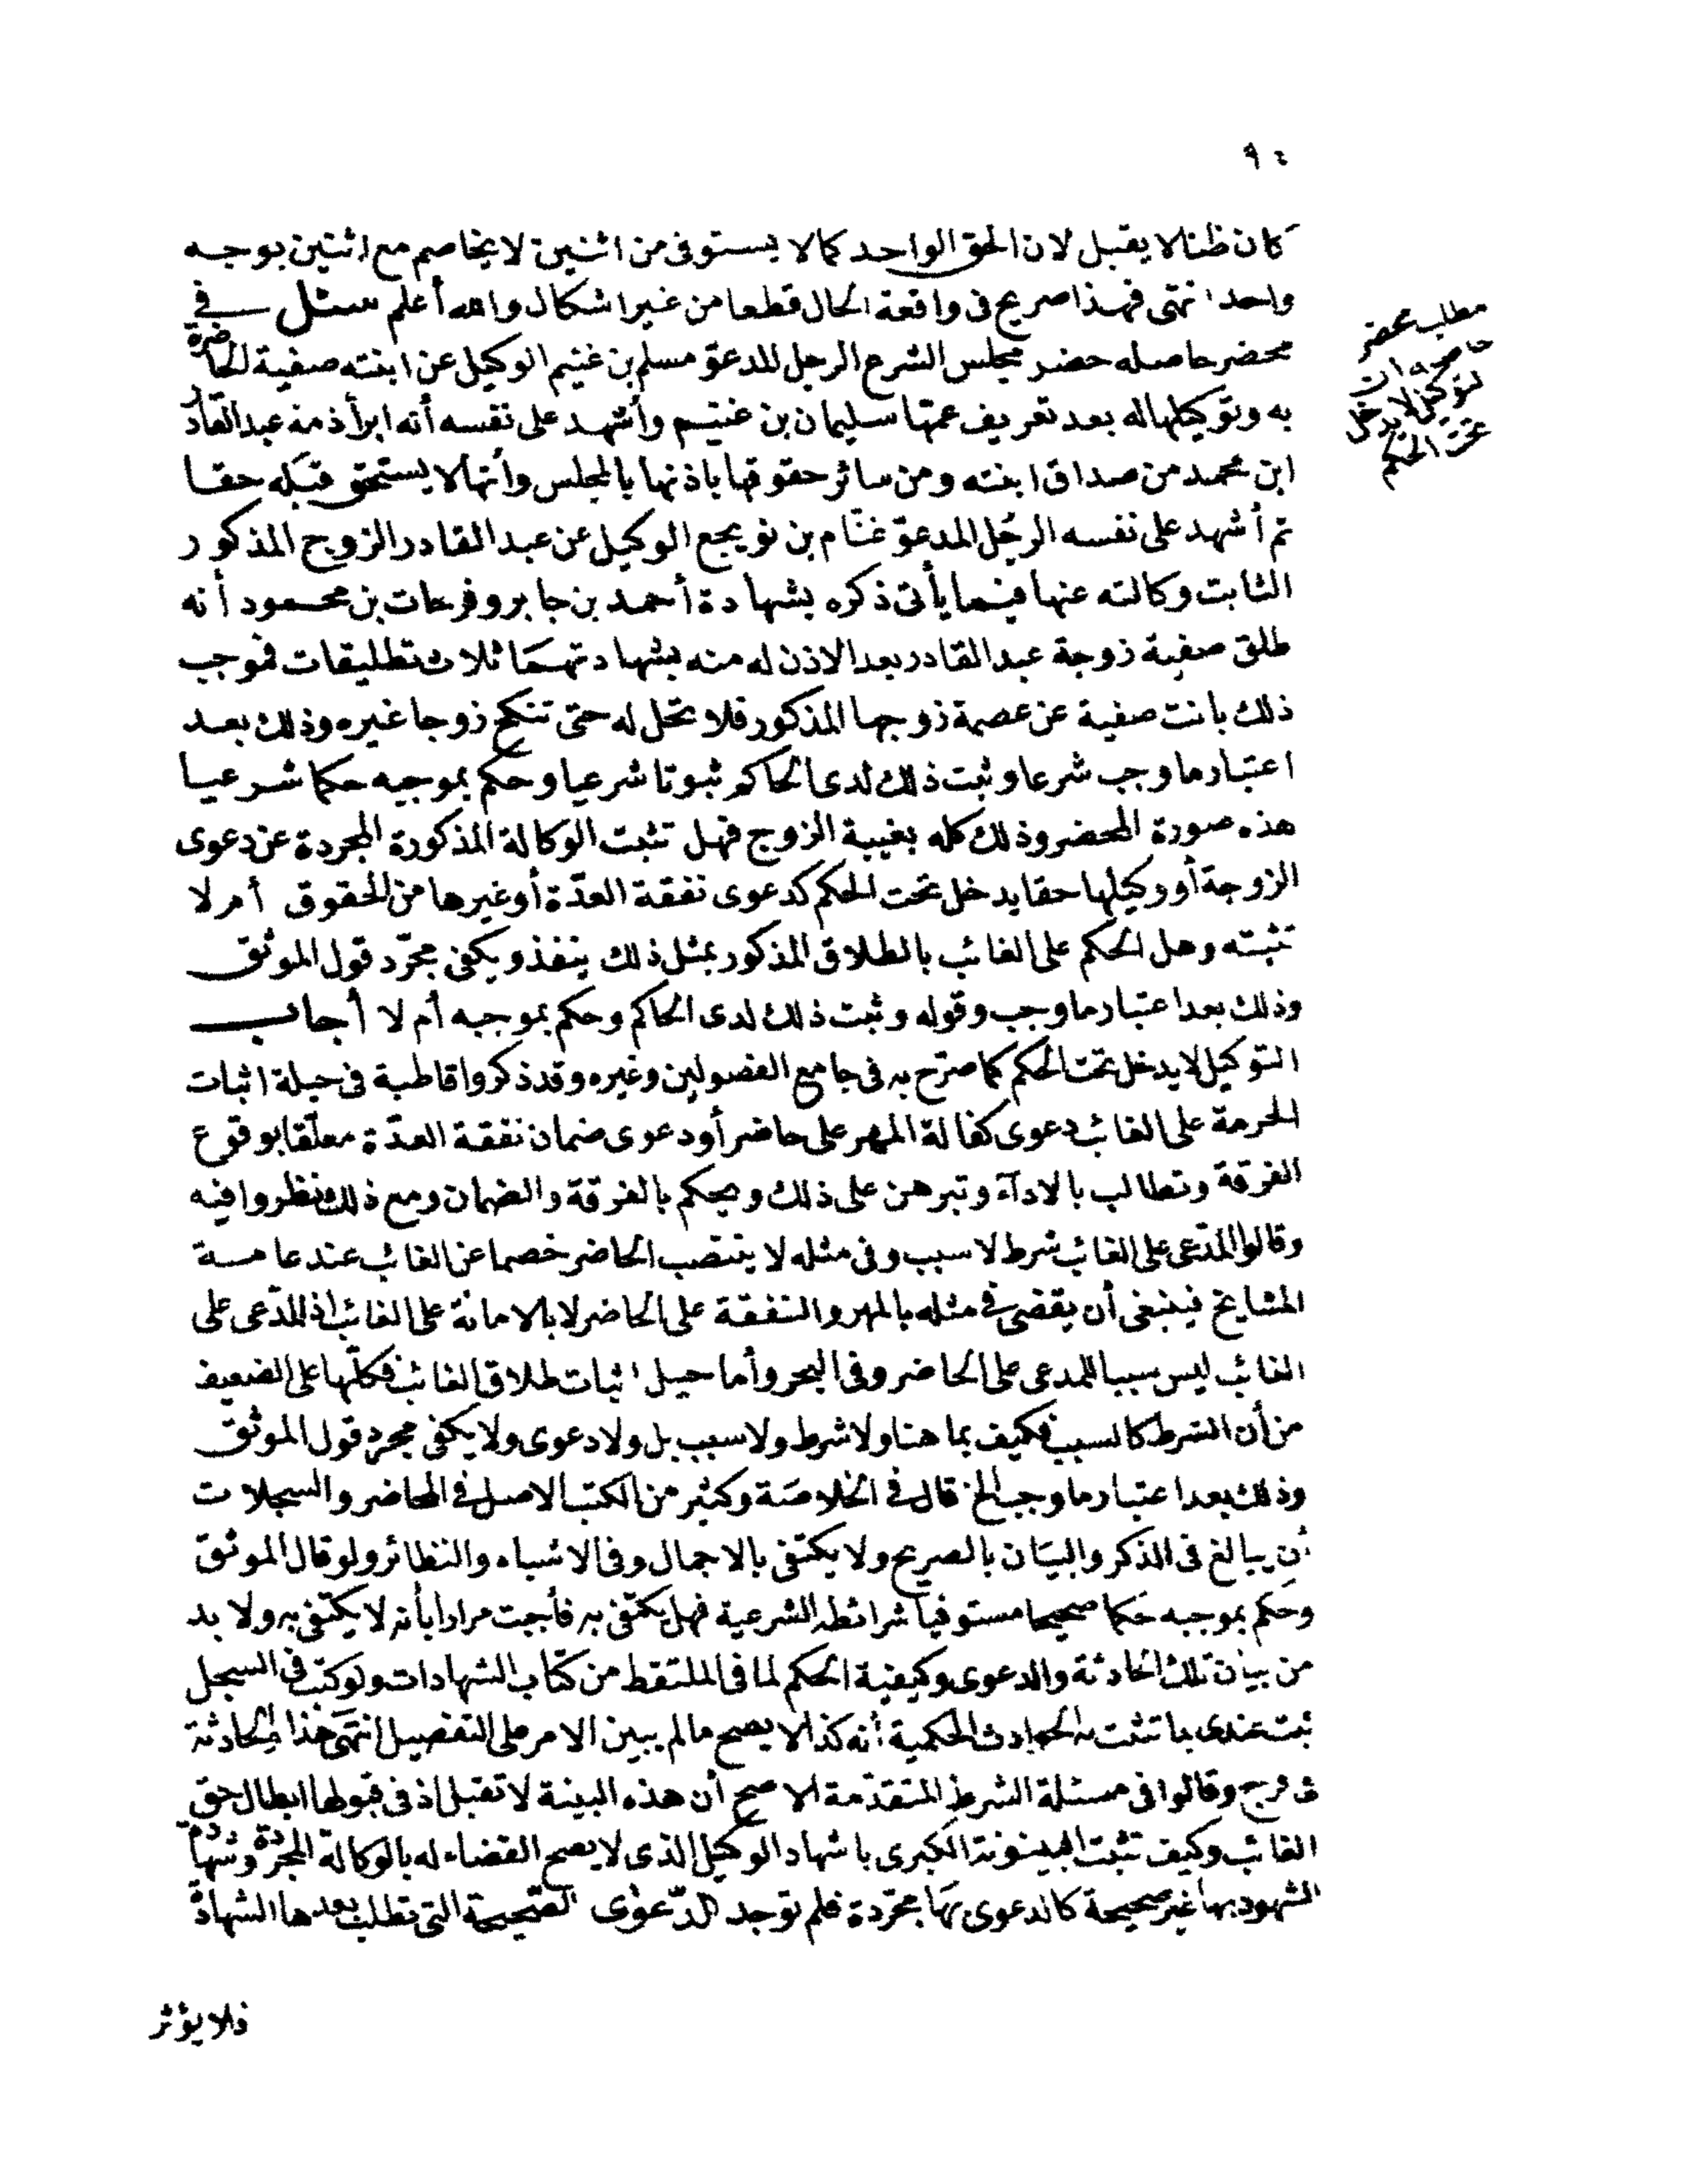 ٩٤
كان ظنا لا يقبل لان الحق الواحد كما لا يستوفى من اثنين لا يخاصم مع اثنين بوجه
واحد انتهى فهذا صريح فى واقعة الحال قطعا من غير اشكال والله أعلم سئل فى
محضر حاصله حضر مجلس الشرع الرجل المدعوّ مسلم بن غنيم الوكيل عن ابنته صفية الحاضرة
به وتوكيلها له بعد تعريف عمها سليمان بن غنيم وأشهد على نفسه أنه ابرأ ذمة عبد القادر
ابن محمد من صداق ابنته ومن سائر حقوقها باذنها بالمجلس وأنها لا يستحق قبله حقا
ثم أشهد على نفسه الرجل المدعوّ غنام بن نويجع الوكيل عن عبد القادر الزوج المذكور
الثابت وكالته عنها فيما يأتى ذكره بشهادة أحمد بن جابر وفرحات بن محمود أنه
طلق صفية زوجة عبد القادر بعد الاذن له منه بشهادتهما ثلاث تطليقات فموجب
ذلك بانت صفية عن عصمة زوجها المذكور فلا تحل له حتى تنكح زوجا غيره وذلك بعد
اعتبار ما وجب شرعا وثبت ذلك لدى الحاكم ثبوتا شرعيا وحكم بموجبه حكما شرعيا
هذه صورة المحضر وذلك كله بغيبة الزوج فهل تثبت الوكالة المذكورة المجردة عن دعوى
الزوجة أو وكيلها حقا يدخل تحت الحكم كدعوى نفقة العدّة أو غيرها من الحقوق أم لا
تثبته وهل الحكم على الغائب بالطلاق المذكور بمثل ذلك ينفذ ويكفى مجرّد قول الموثق
وذلك بعد اعتبار ما وجب وقوله وثبت ذلك لدى الحاكم وحكم بموجبه أم لا أجاب
التوكيل لا يدخل تحت الحكم كما صرّح به فى جامع الفصولين وغيره وقد ذكروا قاطبة فى حيلة اثبات
الحرمة على الغائب دعوى كفالة المهر على حاضر أو دعوى ضمان نفقة العدّة معلقا بوقوع
الفرقة وتطالب بالادآء وتبرهن على ذلك ويحكم بالفرقة والضمان ومع ذلك نظروا فيه
وقالوا المدّعى على الغائب شرط لا سبب وفى مثله لا ينتصب الحاضر خصما عن الغائب عند عامة
المشايخ فينبغى أن يقضى فى مثله بالمهر والنفقة على الحاضر لا بالامانة على الغائب اذ المدّعى على
الغائب ليس سببا للمدعى على الحاضر وفى البحر وأما حيل اثبات طلاق الغائب فكلها على الضعيف
من أن الشرط كالسبب فكيف بما هنا ولا شرط ولا سبب بل ولا دعوى ولا يكفى مجرد قول الموثق
وذلك بعد اعتبار ما وجب الخ قال فى الخلاصة وكثير من الكتب الاصل فى المحاضر والسجلات
أن يبالغ فى الذكر والبيان بالصريح ولا يكتفى بالاجمال وفى الاشباه والنظائر ولو قال الموثق
وحكم بموجبه حكما صحيحا مستوفيا شرائطه الشرعية فهل يكتفى به فأجبت مرارا بأنه لا يكتفى به ولا بد
من بيان تلك الحادثة والدعوى وكيفية الحكم لما فى الملتقط من كتاب الشهادات ولو كتب فى السجل
ثبت عندى بما تثبت به الحوادث الحكمية أنه كذا لا يصح ما لم يبين الامر على التفصيل انتهى هذا والحادثة
وقالوا فى مسئلة الشرط المتقدّمة الاصح أن هذه البينة لا تقبل اذ فى قبولها ابطال حق
الغائب وكيف تثبت البينونة الكبرى باشهاد الوكيل الذى لا يصح القضاء له بالوكالة المجرّدة وشهادة
الشهود بها غير صحيحة كالدعوى بها مجرّدة فلم توجد الدّعوى الصّحيحة التى تطلب بعدها الشهادة
فلا يؤثر
مطلب محضر
حاصله ان
التوكيل لا يدخل
تحت الحكم